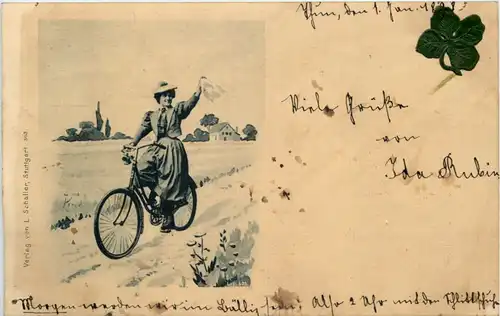 Thun, den 1. Jan. 1898
Viele Grüße
von
Ida Rubin
Verlag von L. Schaller, Stuttgart
Morgen werden wir in Bällig sein. Also 2 Uhr mit den Schlittschuh